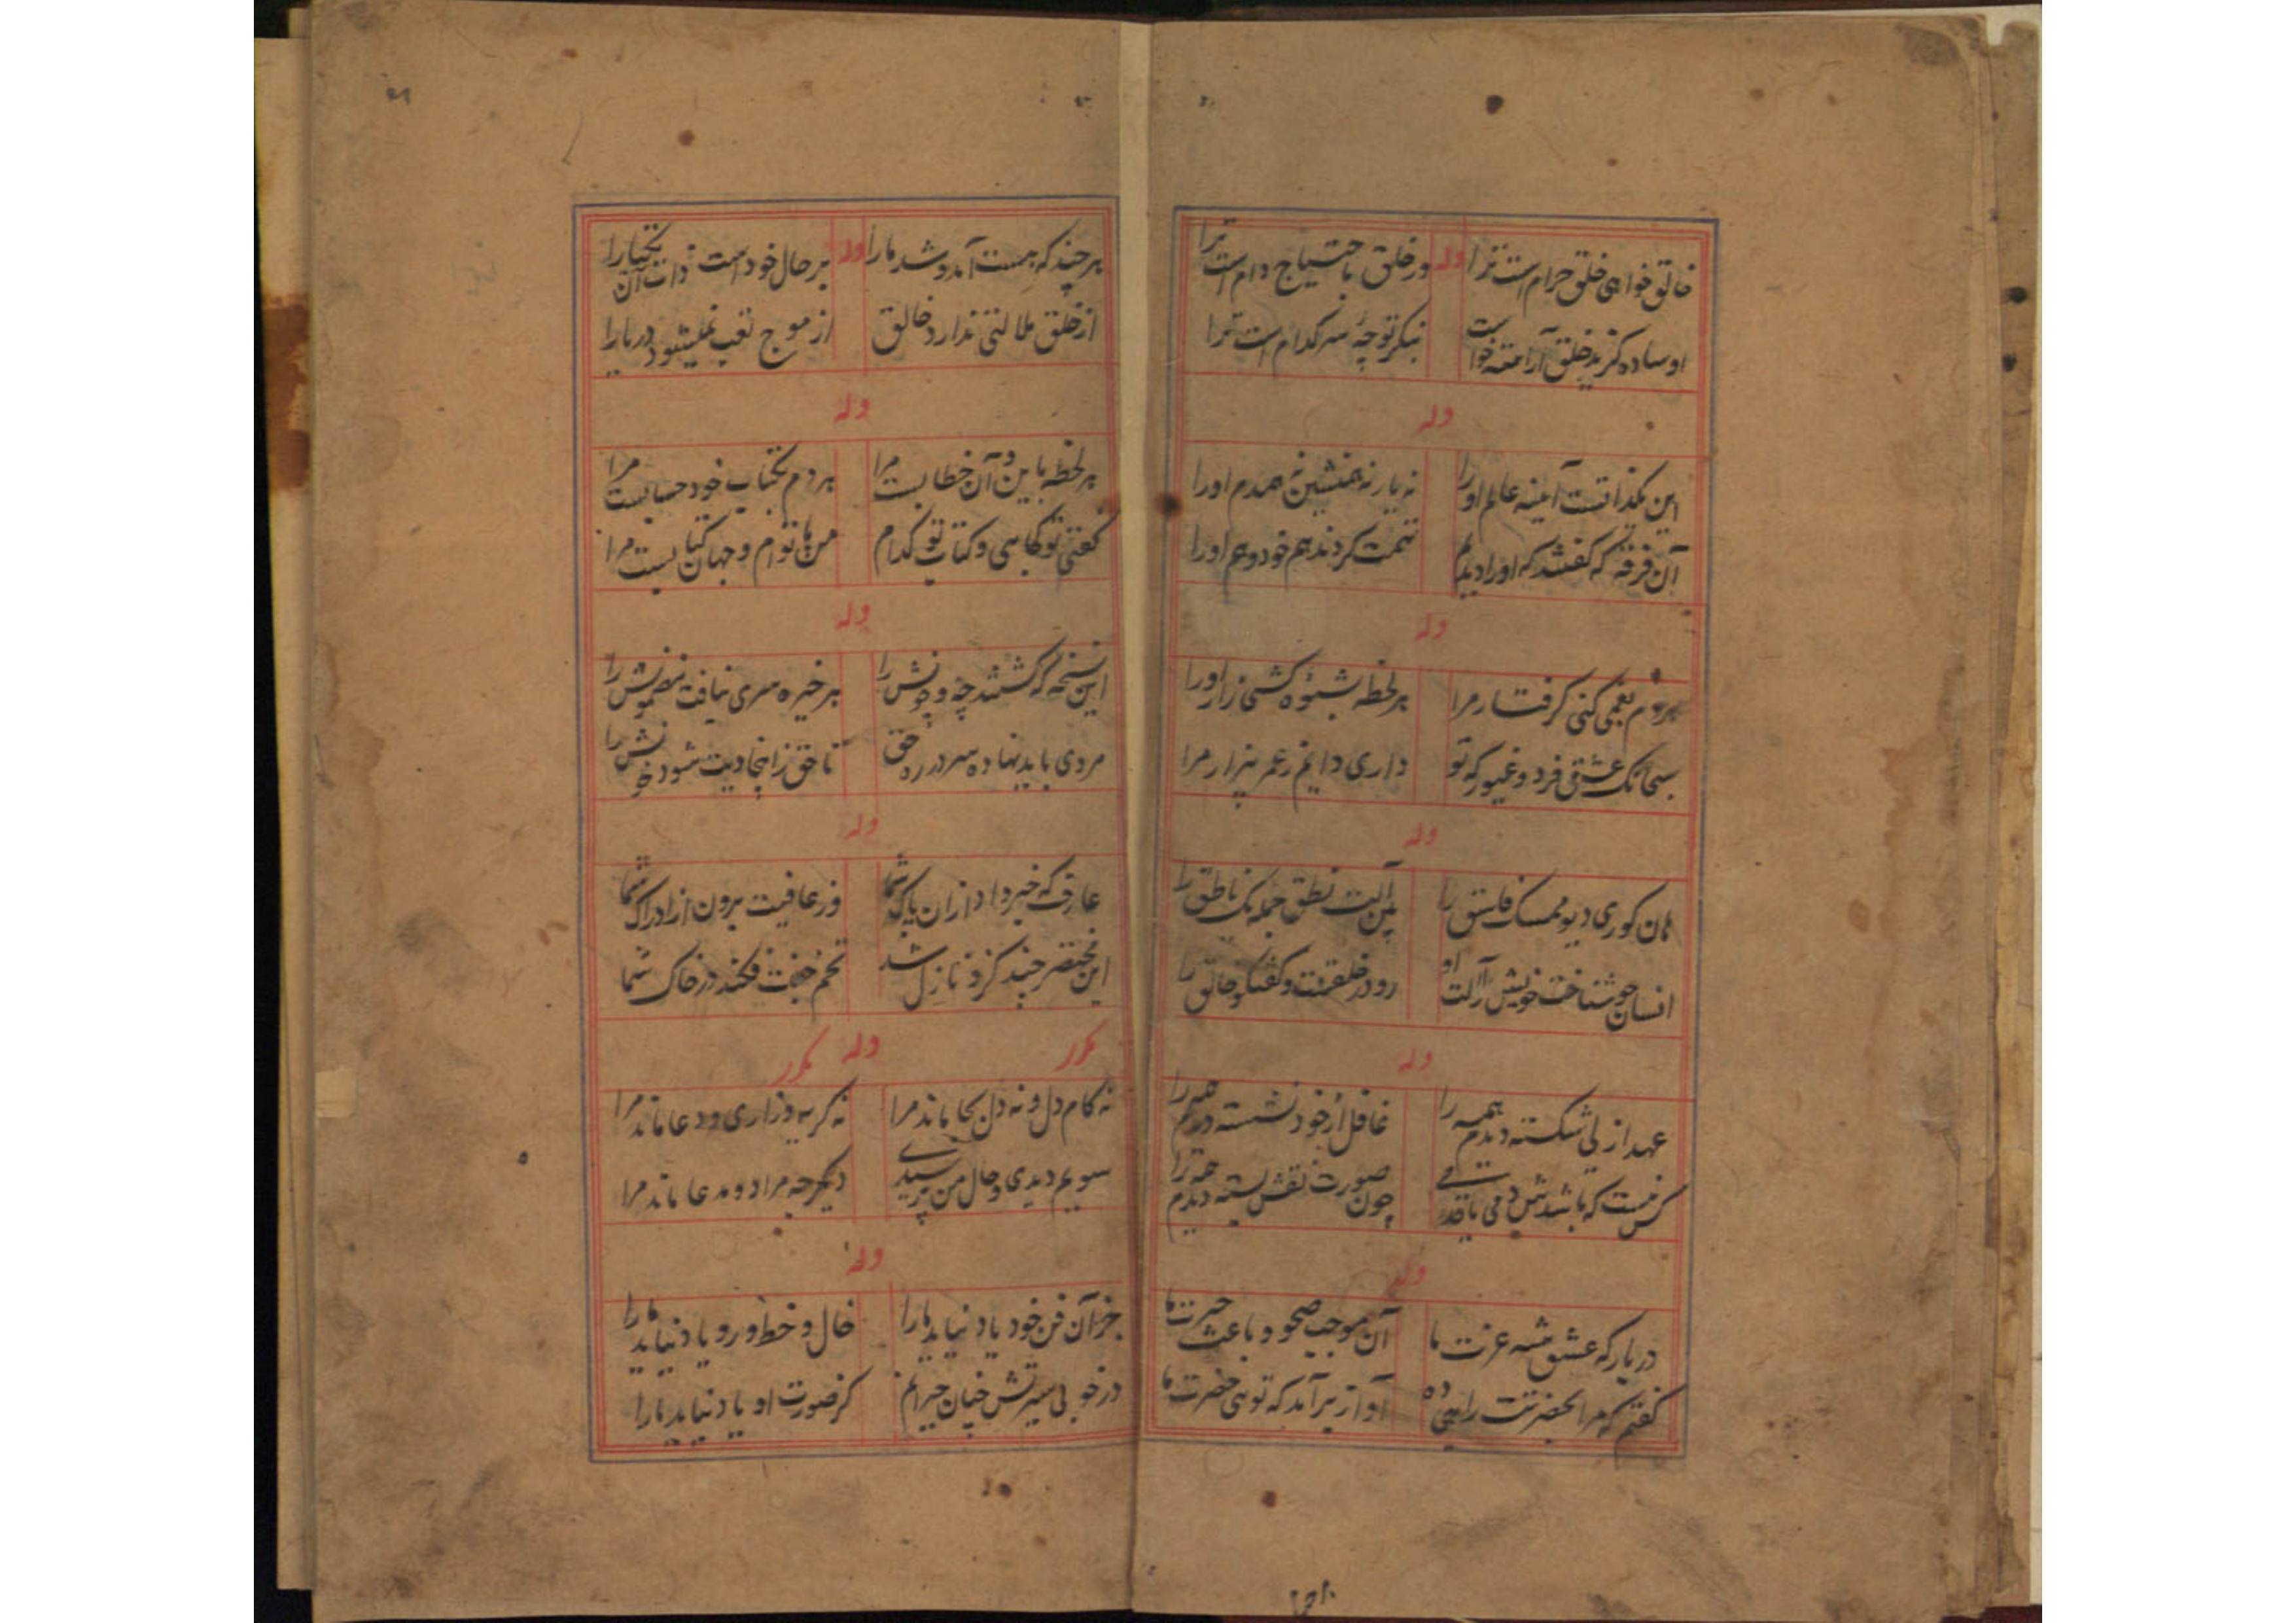 خالق خواهی خلق حرام است ترا وله ور خلق باحتیاج دام است ترا
او ساده گزید خلق آراسته خواست بنگر تو چه سر کدام است ترا
وله
این یکذاتست آینه عالم او را نه یار نه همنشین نه همدم او را
آن فرقه که گفتند که او را دیدیم تهمت کردند هم خود و هم او را
وله
هر دم بغمی کنی گرفتار مرا هر لحظه بشیوه کشی زار او را
سبحانک عشقی فرد و غیور که تو داری دایم ز غیر بیزار مرا
وله
هان کوری دیو ممسک فاسق را آلت نطق جمله یک ناطق را
انسان چو شناخت خویش را آلت او رو در خلقت و گفتگو خالق را
وله
عهد ازلی شکسته دیدم همه را غافل از خود نشسته دیدم همه را
کس نیست که باشدش دمی یا قدمی چون صورت نقش بسته دیدم همه را
وله
دربار که عشق شه عزت ما آن موجب صحو و باعث حیرت ما
گفتم که مرا بحضرتت راهی ده آواز برآمد که توئی حضرت ما
هرچند که هست آمد و شد ما را وله بر حال خود است ذات آن یکتا را
از خلق ملالتی ندارد خالق از موج تعب نمیشود دریا را
وله
هر لحظه باین و آن خطابیست مرا هر دم بکتاب خود حسابیست مرا
گفتی تو کجاهی و کتاب تو کدام من با توام و جهان کتابیست مرا
وله
این نسخه که گشتند چه و چونش را هر خیره سری نیافت مضمونش را
مردی باید نهاده سر در ره حق تا حق ز انجا دیت شود خونش را
وله
عارف که خبر داد ازان پاک شما ور عافیت برون از ادراک شما
این مختصر چند کزو نازل شد تخم فکند در خاک شما
مکرر وله مکرر
نه کام دل و نه دل بجا ماند مرا نه گریه و زاری و دعا ماند مرا
سویم دیدی و حال من پرسیدی دیگر چه مراد و مدعا ماند مرا
وله
جز آن فن خود یاد نیاید ما را خال و خط و رو یاد نیاید ما را
در خوبی سیرتش چنان حیرانم کز صورت او یاد نیاید ما را